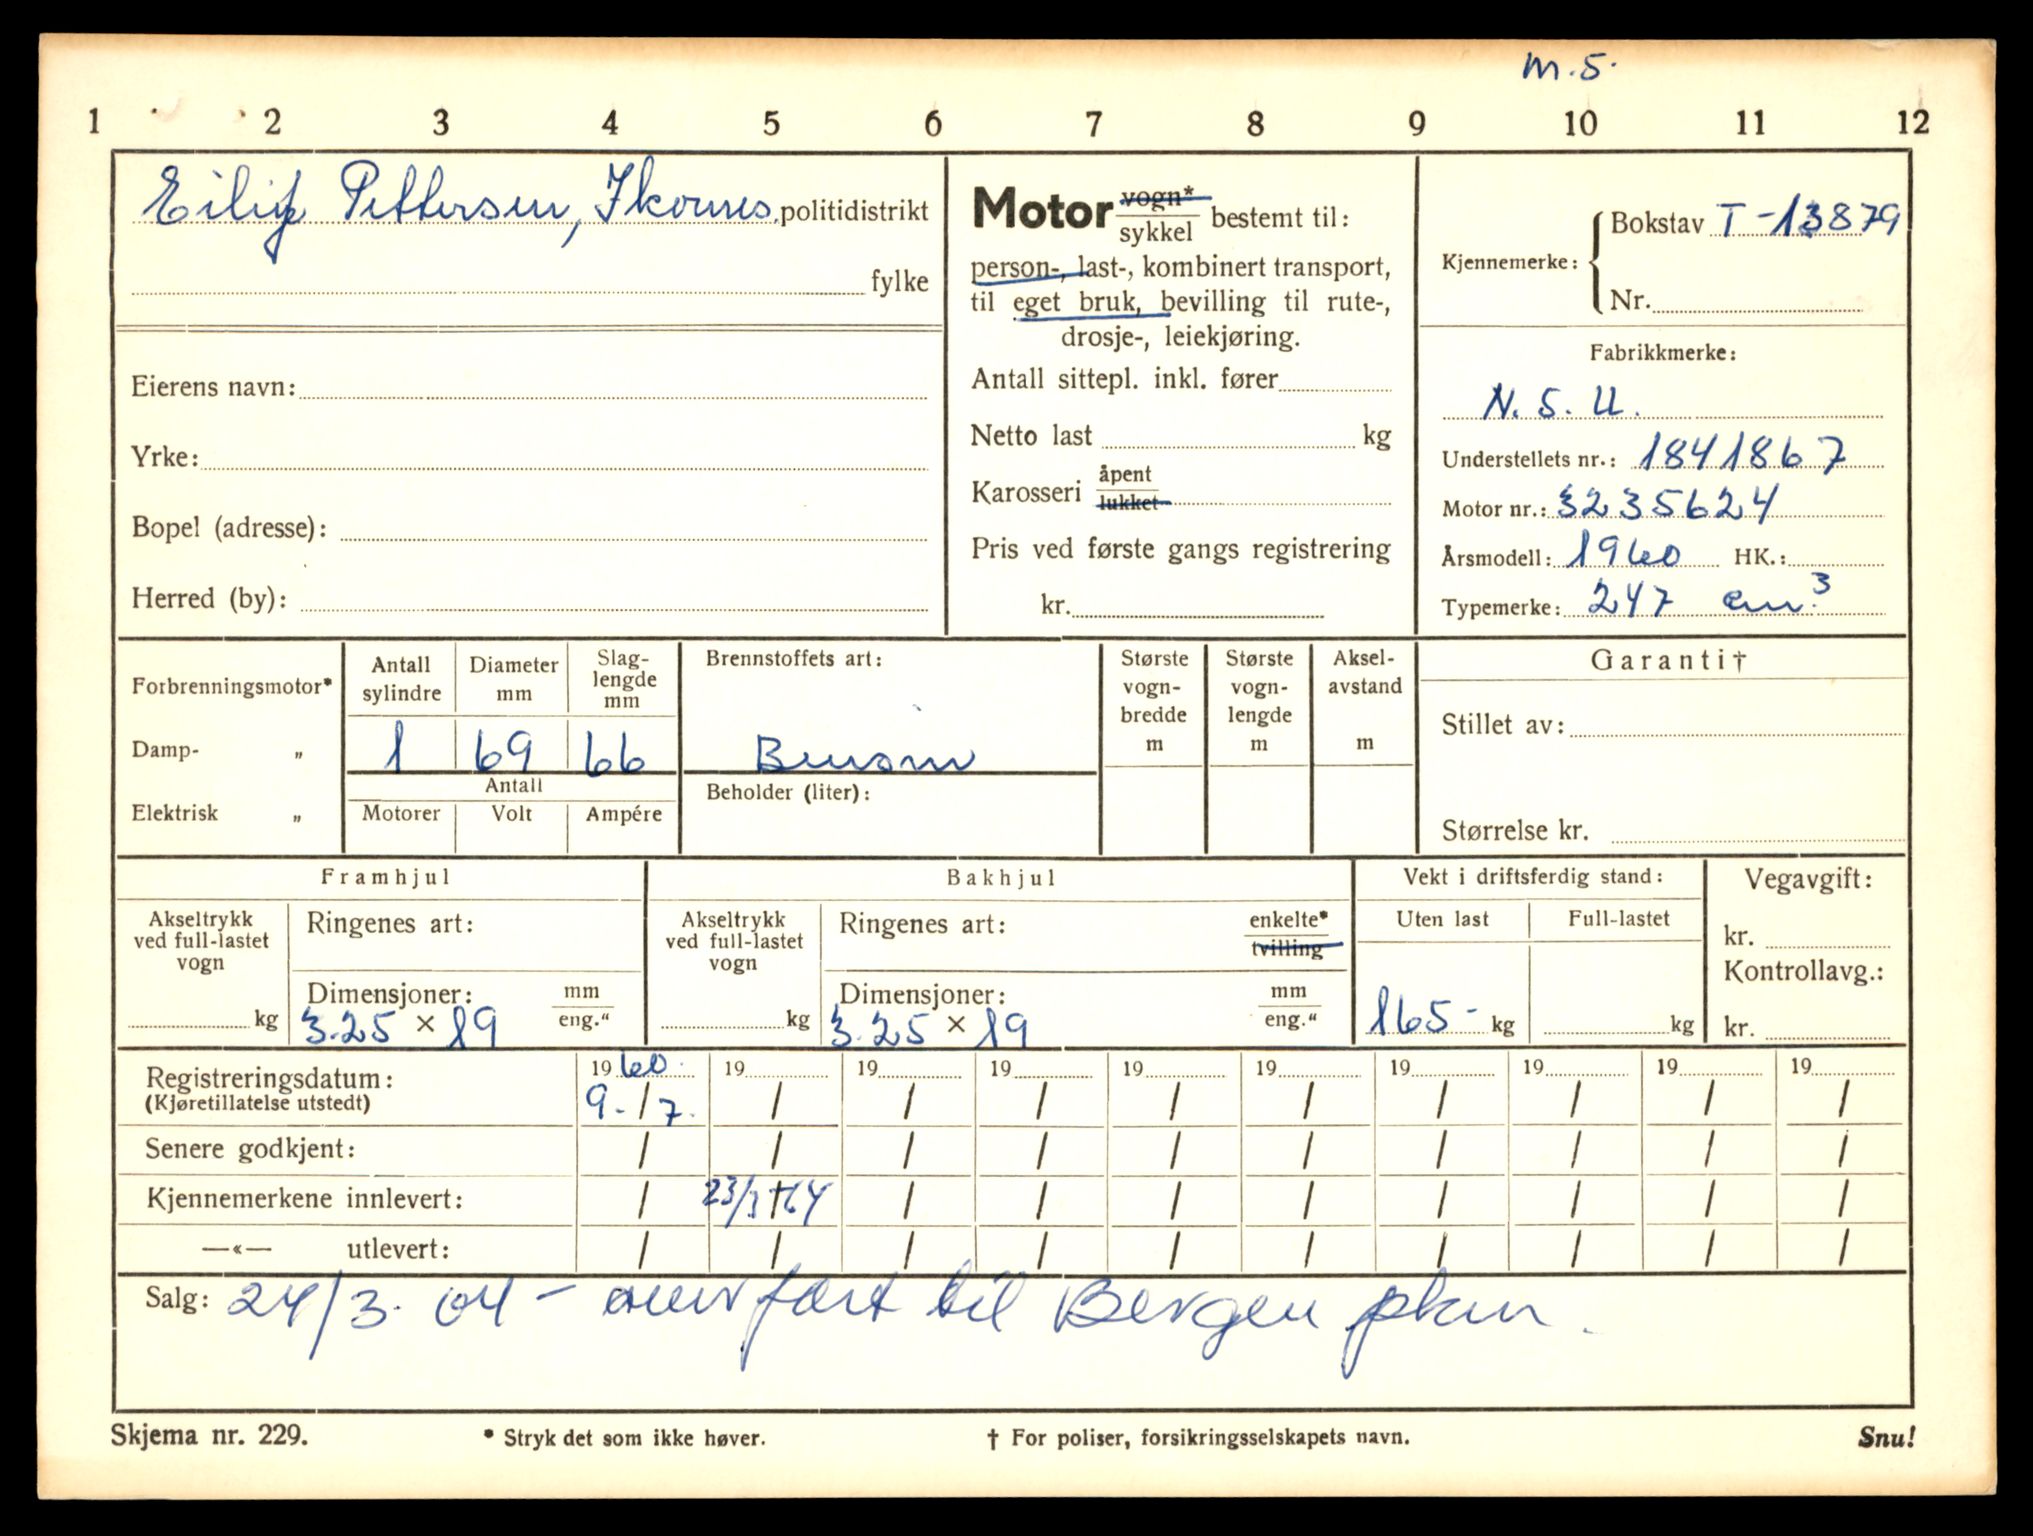 m.s.
1 2 3 4 5 6 7 8 9 10 11 12
Eilif Pettersen, Ikornes politidistrikt
fylke
Eierens navn:
Yrke:
Bopel (adresse):
Herred (by):
Motor vogn* / sykkel bestemt til:
person-, last-, kombinert transport,
til eget bruk, bevilling til rute-,
drosje-, leiekjøring.
Antall sittepl. inkl. fører
Netto last kg
Karosseri åpent / lukket
Pris ved første gangs registrering
kr.
Kjennemerke: Bokstav T-13879
Nr.
Fabrikkmerke:
N.S.U.
Understellets nr.: 1841867
Motor nr.: 3235624
Årsmodell: 1960 HK.:
Typemerke: 247 cm.3
Forbrenningsmotor*
Damp- „
Elektrisk „
Antall sylindre
Diameter mm
Slag-
lengde
mm
1 69 66
Antall
Motorer Volt Ampére
Brennstoffets art:
Bensin
Beholder (liter):
Største
vogn-
bredde
m
Største
vogn-
lengde
m
Aksel-
avstand
m
Garanti†
Stillet av:
Størrelse kr.
Framhjul
Akseltrykk
ved full-lastet
vogn
kg
Ringenes art:
Dimensjoner: mm / eng."
3.25 × 19
Bakhjul
Akseltrykk
ved full-lastet
vogn
kg
Ringenes art: enkelte* / tvilling
Dimensjoner: mm / eng."
3.25 × 19
Vekt i driftsferdig stand:
Uten last Full-lastet
165- kg kg
Vegavgift:
kr.
Kontrollavg.:
kr.
Registreringsdatum: 1960. 19 19 19 19 19 19 19 19 19
(Kjøretillatelse utstedt) 9./7. / / / / / / / / /
Senere godkjent: / / / / / / / / / /
Kjennemerkene innlevert: / 23/3 / 64 / / / / / / / /
—«— utlevert: / / / / / / / / / /
Salg: 24/3. 64 - overført til Bergen pkm.
Skjema nr. 229. * Stryk det som ikke høver. † For poliser, forsikringsselskapets navn. Snu!